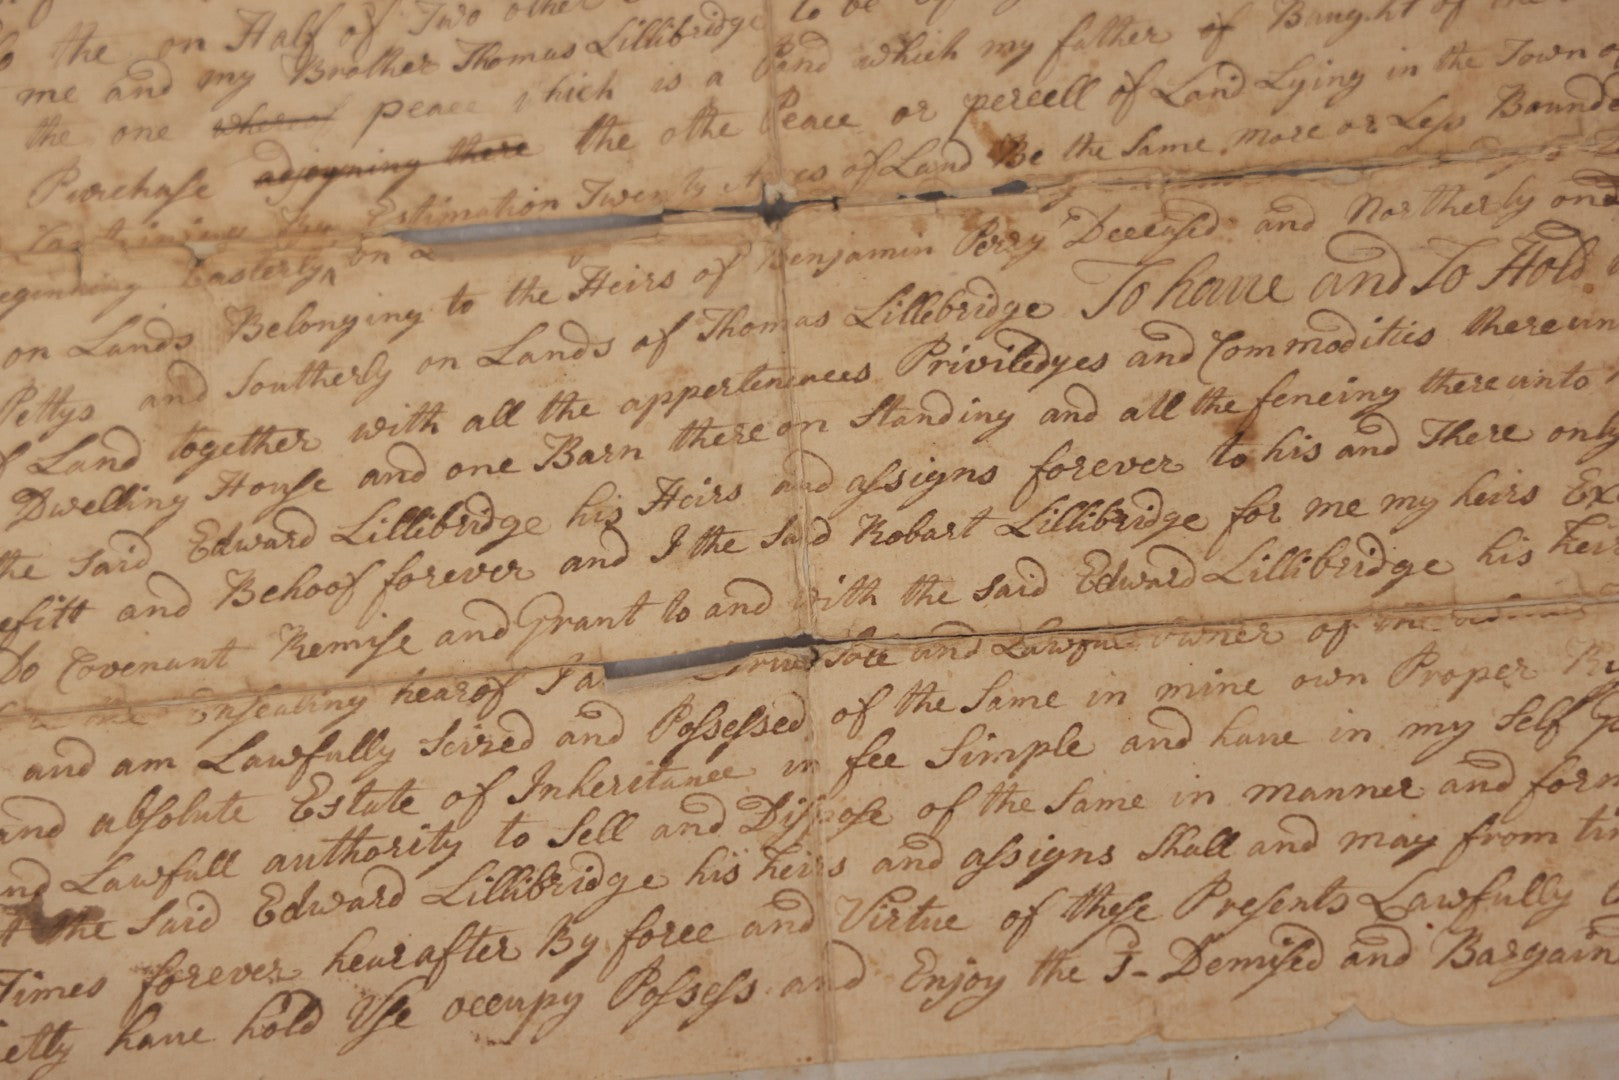 the on Half of Two other
me and my Brother Thomas Lillibridge to be
the one whereof peace which is a Land which my father of Baught of the
Purchase adjoyning there the othe Peace or percell of Land Lying in the Town of
Estimation Twenty Acres of Land Be the Same more or Less Bounde
beginning Easterly on
on Lands Belonging to the Heirs of Benjamin Perry Deceased and Northerly on
Pettys and Southerly on Lands of Thomas Lillebridge To have and To Hold
of Land together with all the appertenences Priviledges and Commodities thereun
Dwelling House and one Barn thereon Standing and all the fencing thereunto
the said Edward Lillibridge his Heirs and assigns forever to his and There only
efitt and Behoof forever and I the Said Robart Lillibridge for me my heirs Ex
Do Covenant Remise and Grant to and with the said Edward Lillibridge his heir
the Ensealing hearof I a True Sole and Lawfull owner of the
and am Lawfully Seized and Possessed of the Same in mine own Proper Ri
and absolute Estate of Inheritance in fee Simple and have in my Self
and Lawfull authority to Sell and Dispose of the Same in manner and form
the Said Edward Lillibridge his heirs and assigns Shall and may from ti
Times forever hearafter By force and Virtue of these Presents Lawfully
ietly have hold Use occupy Possess and Enjoy the s- Demised and Bargain